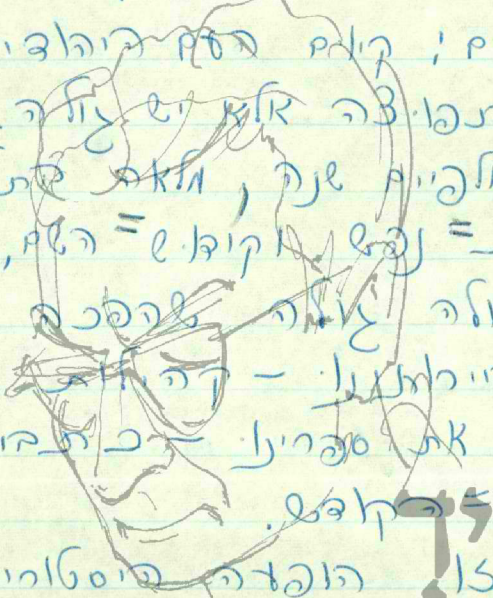 ם ; קיום העם היהודי
תפוצה אלא יש גולה
לפיים שנה, מלאת
= נפש וקודש השם,
ולה גולה שהפכה
– קהילות
את ספרינו – כתבי
הקודש.
זו הופעה היסטורי